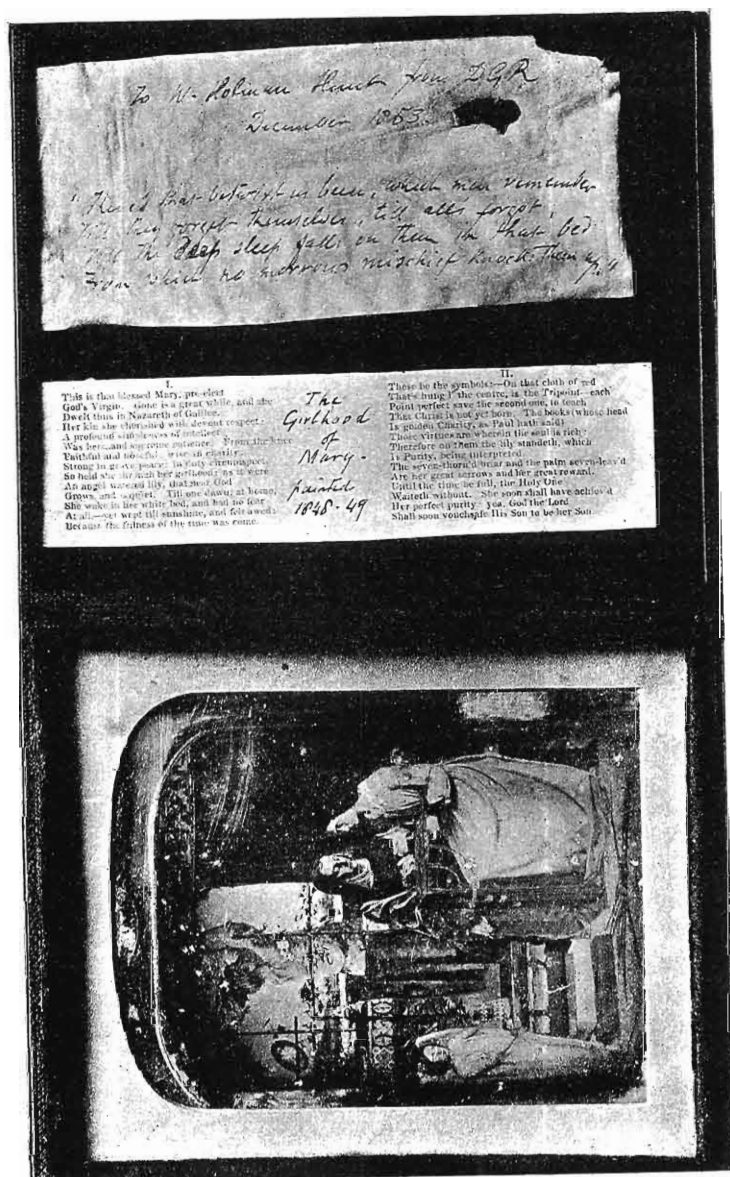 To W. Holman Hunt from DGR
December 1853.
"There's that betwixt us been, which men remember
Till they forget themselves, till all's forgot,
Till the deep sleep falls on them in that bed
From which no morrow's mischief knocks them up."
I.
This is that blessed Mary, pre-elect
God's Virgin. Gone is a great while, and she
Dwelt thus in Nazareth of Galilee.
Her kin she cherished with devout respect:
A profound simpleness of intellect
Was hers, and supreme patience. From the knee
Faithful and hopeful; wise in charity;
Strong in grave peace; in duty circumspect.
So held she through her girlhood; as it were
An angel-watered lily, that near God
Grows, and is quiet. Till one dawn, at home,
She woke in her white bed, and had no fear
At all,—yet wept till sunshine, and felt awed;
Because the fulness of the time was come.
The
Girlhood
of
Mary.
painted
1848-49
II.
These be the symbols:—On that cloth of red
That's hung i' the centre, is the Tripoint—each
Point perfect save the second one, to teach
That Christ is not yet born. The books (whose head
Is golden Charity, as Paul hath said)
Those virtues are wherein the soul is rich:
Therefore on them the lily standeth, which
Is Purity, being interpreted.
The seven-thorn'd briar and the palm seven-leav'd
Are her great sorrows and her great reward.
Until the time be full, the Holy One
Waiteth without. She soon shall have achiev'd
Her perfect purity: yea, God the Lord
Shall soon vouchsafe His Son to be her Son.